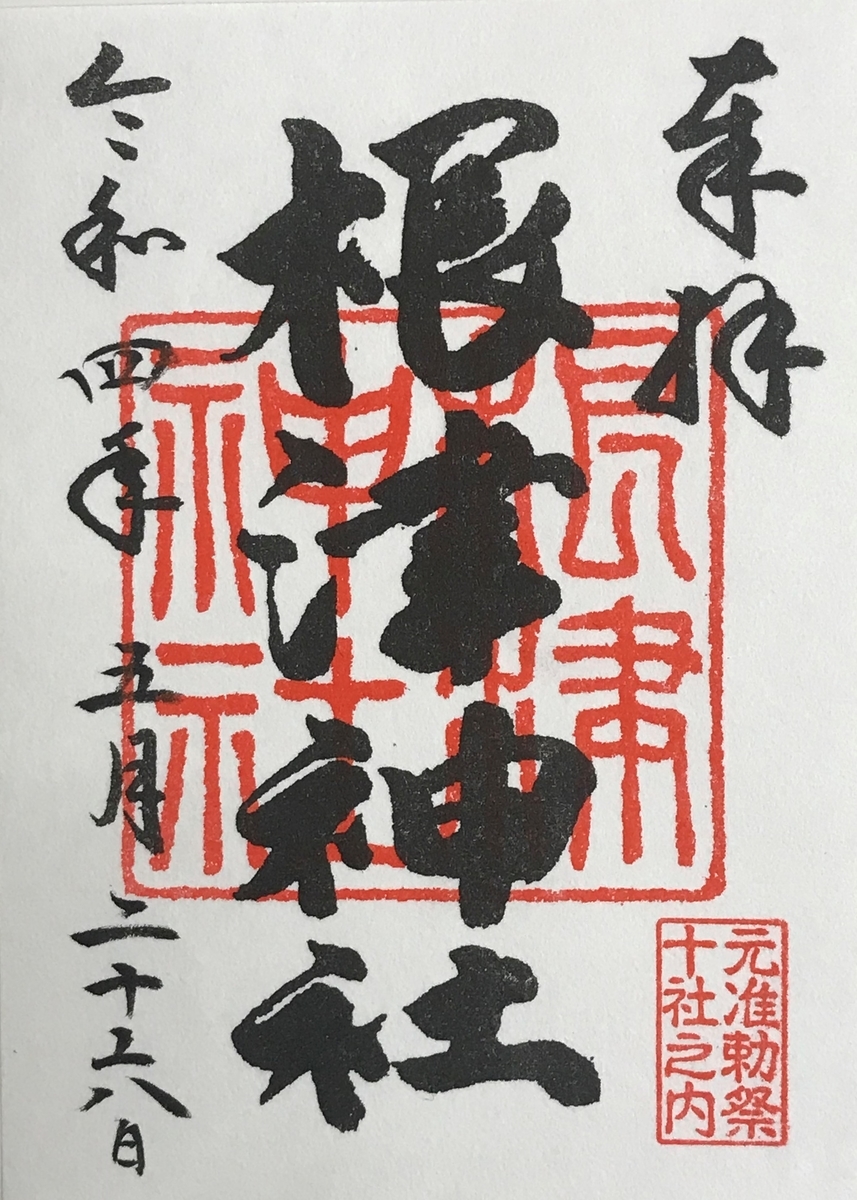 奉拝
元准勅祭
十社之内
根津
神社
根津神社
令和四年五月二十六日